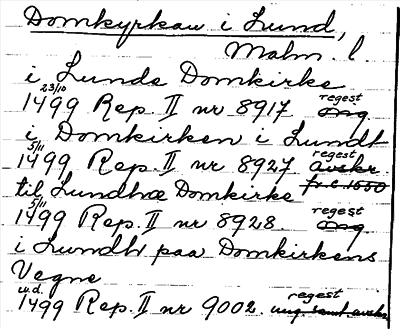 Domkyrkan i Lund,
Malm. l.
i Lunds Domkirke
23/10 regest
1499 Rep. II nr 8917 orig
i Domkirken i Lundt
5/11 regest
1499 Rep. II nr 8927 avskr
til Lundhæ Domkirke fr. c. 1550
5/11 regest
1499 Rep. II nr 8928. orig
i Lundh paa Domkirkens
Vegne
u.d. regest
1499 Rep. II nr 9002.